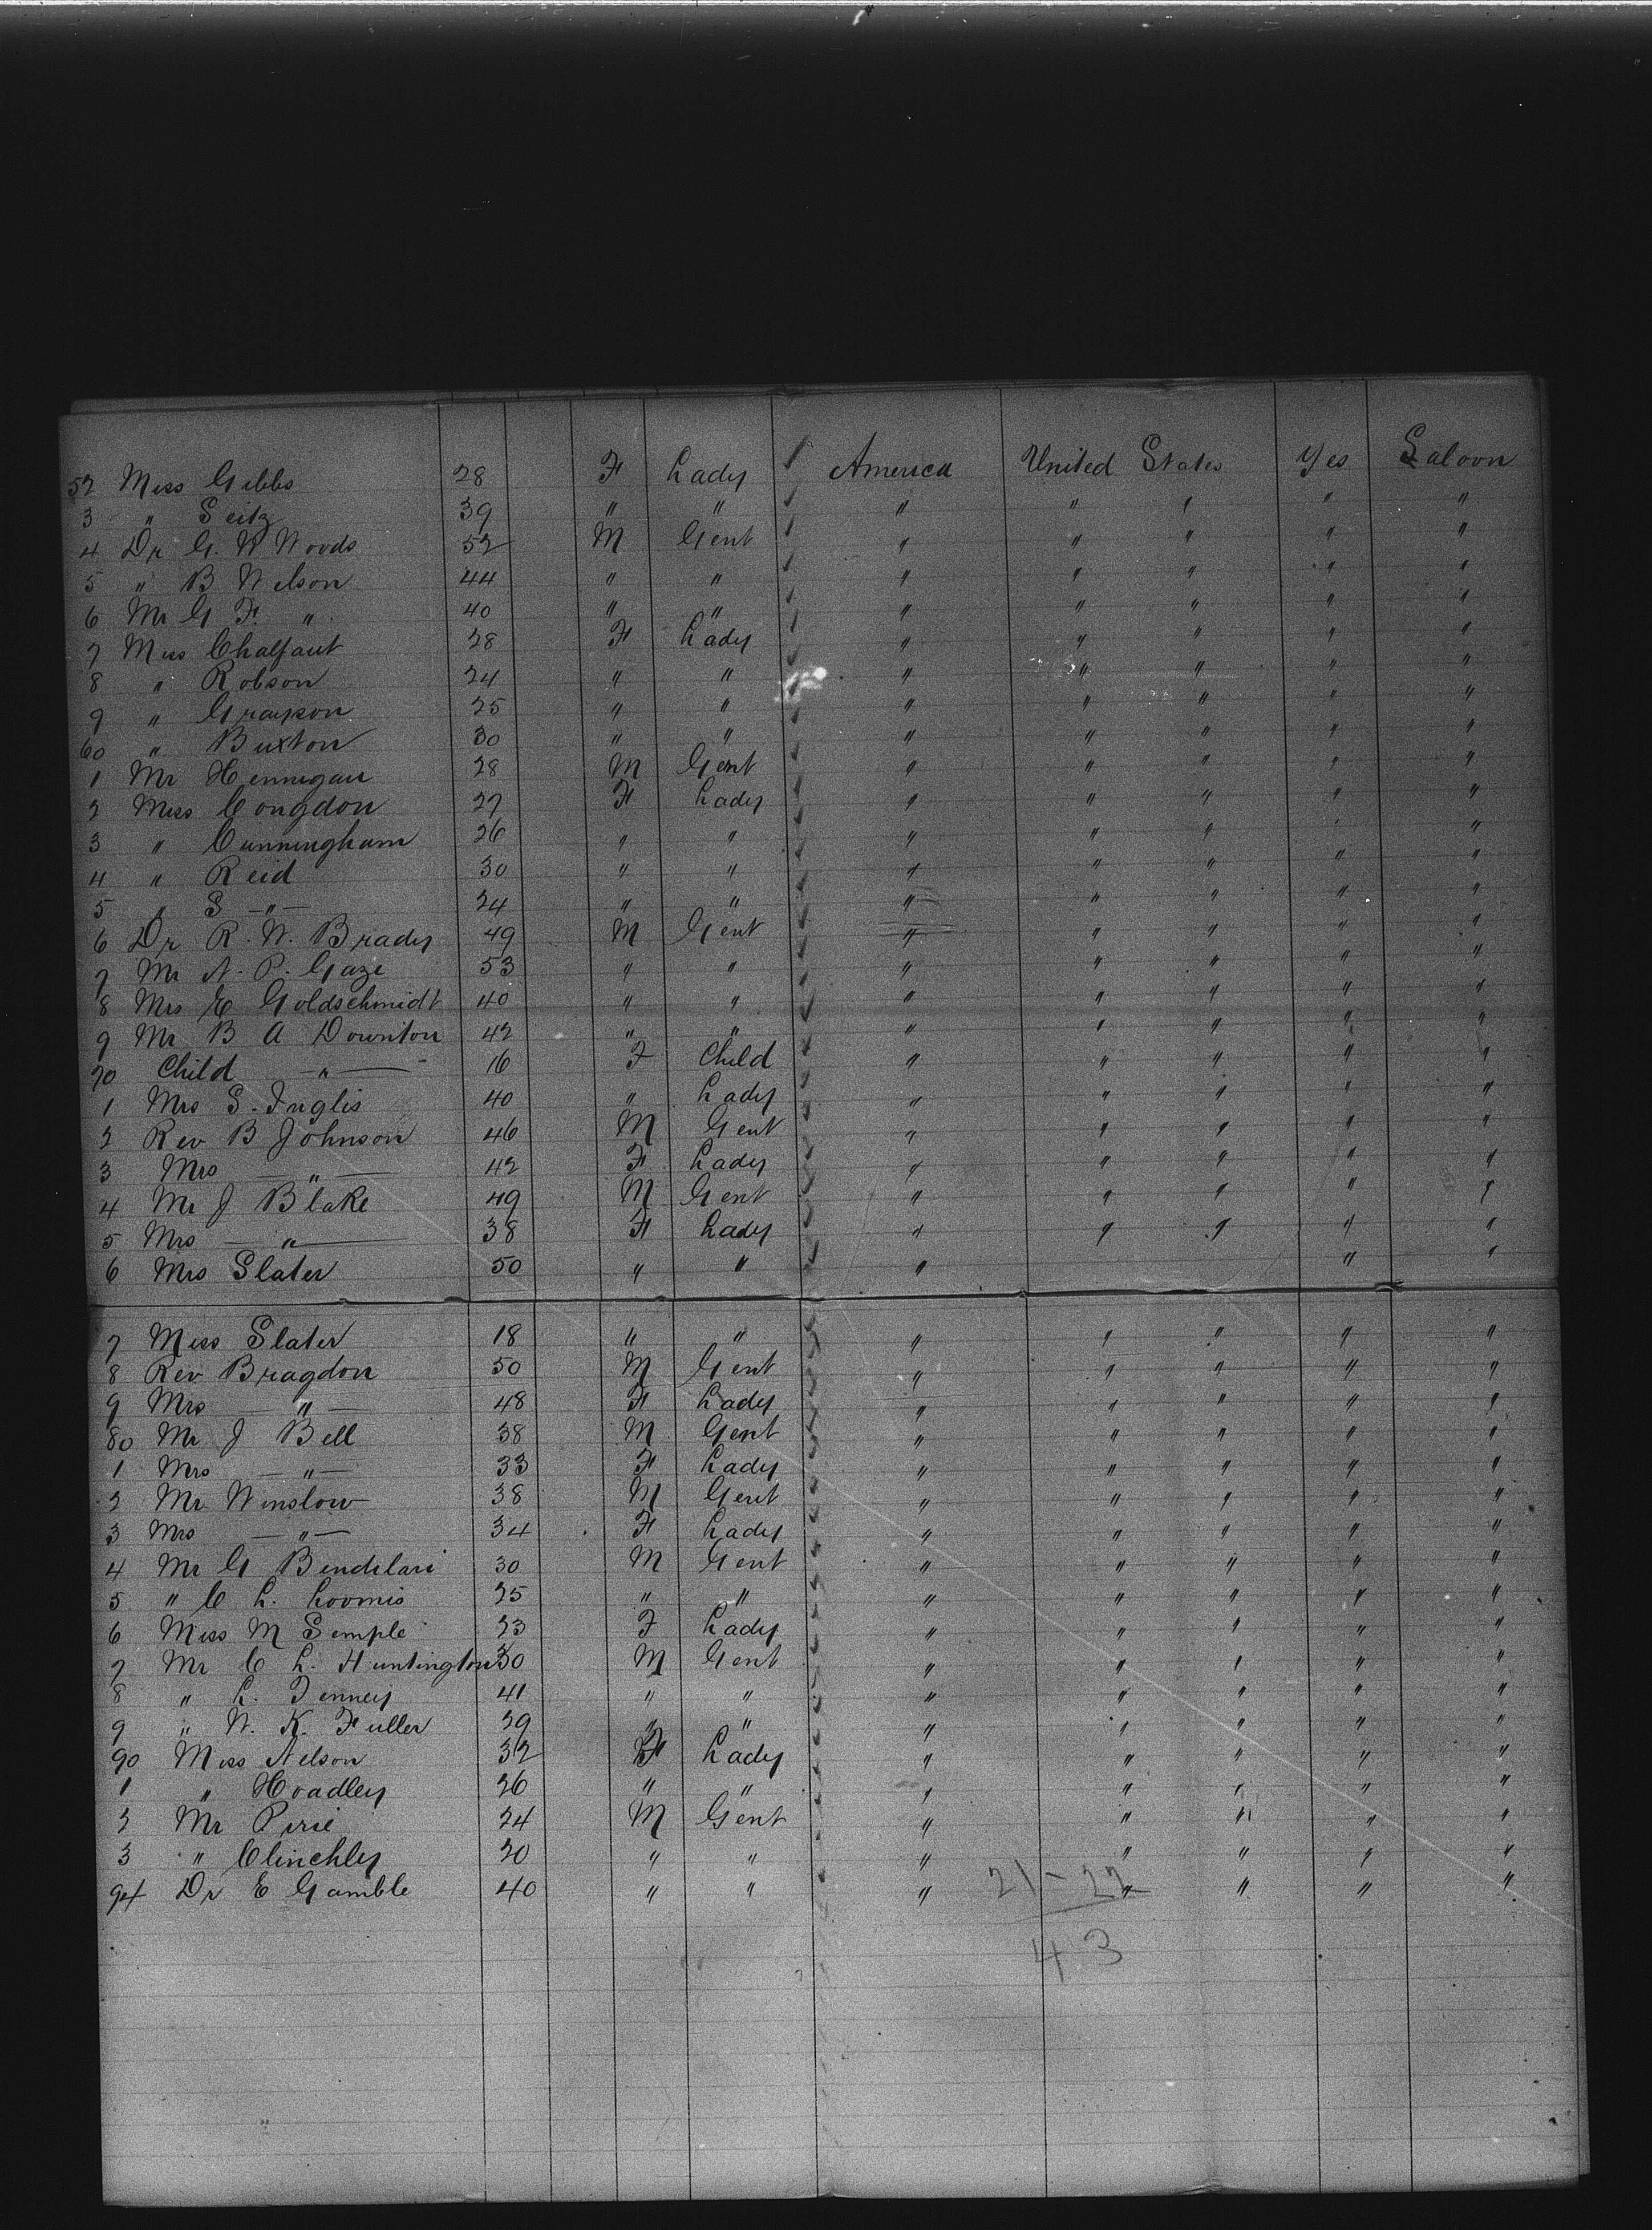 52 Miss Gibbs 28 F Lady America United States Yes Saloon
3 " Seitz 39 " " " " " " "
4 Dr G. W Woods 52 M Gent " " " " "
5 " B Nelson 44 " " " " " " "
6 Mr G F. " 40 " " " " " " "
7 Miss Chalfant 28 F Lady " " " " "
8 " Robson 24 " " " " " " "
9 " Grayson 25 " " " " " " "
60 " Buxton 30 " " " " " " "
1 Mr Hennigan 28 M Gent " " " " "
2 Miss Congdon 27 F Lady " " " " "
3 " Cunningham 26 " " " " " " "
4 " Reid 30 " " " " " " "
5 " S —"— 24 " " " " " " "
6 Dr R. W. Brady 49 M Gent " " " " "
7 Mr N. P. Gaze 53 " " " " " " "
8 Mrs E Goldschmidt 40 " " " " " " "
9 Mr B A Downton 42 " " " " " " "
70 Child —"— 16 F Child " " " " "
1 Mrs S. Inglis 40 " Lady " " " " "
2 Rev B Johnson 46 M Gent " " " " "
3 Mrs —"— 42 F Lady " " " " "
4 Mr J Blake 49 M Gent " " " " "
5 Mrs —"— 38 F Lady " " " " "
6 Mrs Slater 50 " " " " "
7 Miss Slater 18 " " " " " " "
8 Rev Bragdon 50 M Gent " " " " "
9 Mrs —"— 48 F Lady " " " " "
80 Mr J Bell 38 M Gent " " " " "
1 Mrs —"— 33 F Lady " " " " "
2 Mr Winslow 38 M Gent " " " " "
3 Mrs —"— 34 F Lady " " " " "
4 Mr G Bendelari 30 M Gent " " " " "
5 " C L. Loomis 25 " " " " " " "
6 Miss M Semple 23 F Lady " " " " "
7 Mr C L. Huntington 30 M Gent " " " " "
8 " L. Tenney 41 " " " " " " "
9 " W. K. Fuller 39 " " " " " " "
90 Miss Nelson 32 F Lady " " " " "
1 " Hoadley 26 " " " " " " "
2 Mr Pirie 24 M Gent " " " " "
3 " Clinchly 20 " " " " " " "
94 Dr E Gamble 40 " " " " " " "
21 - 22
43